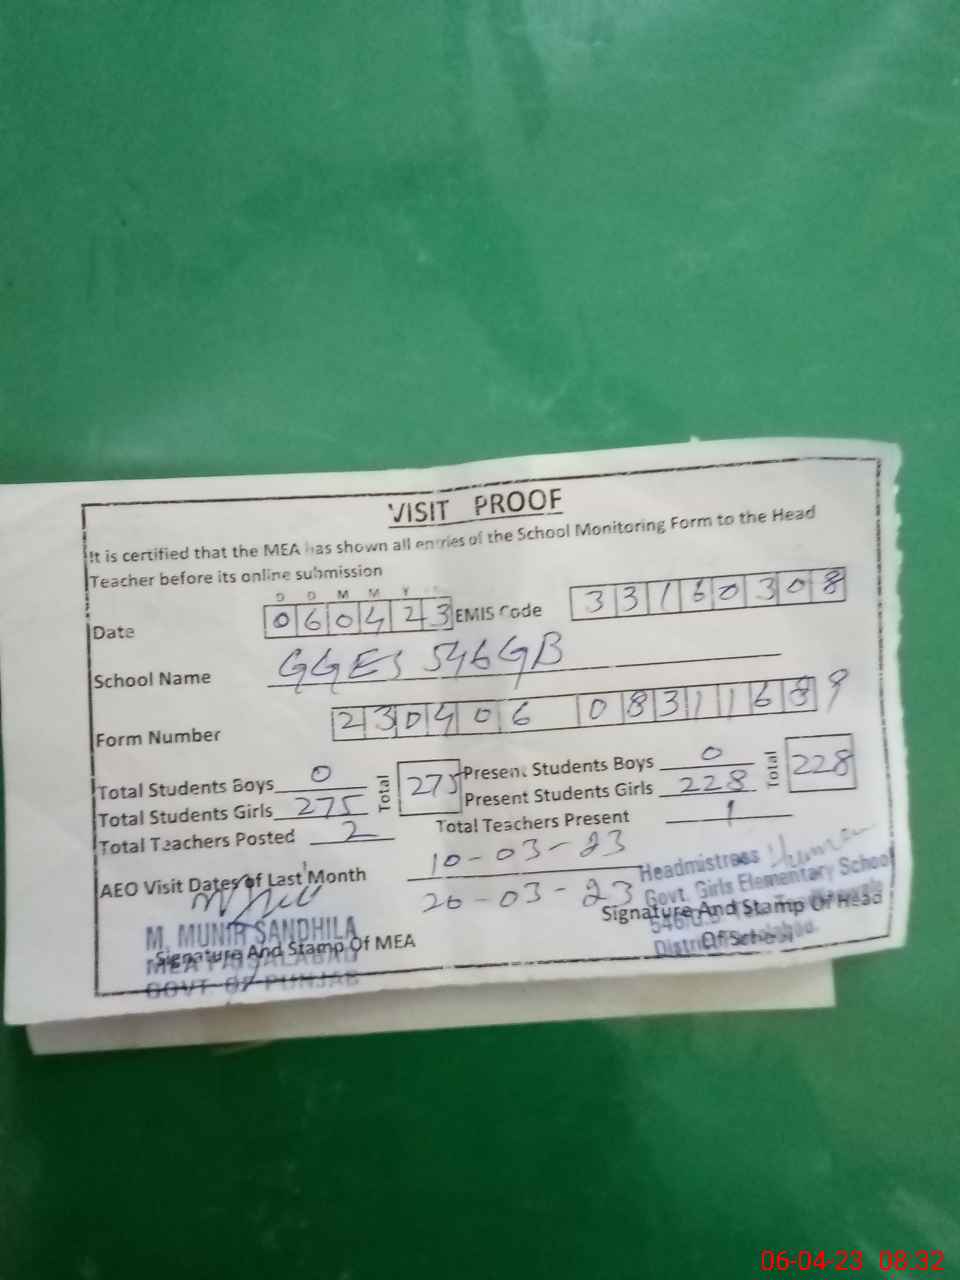 VISIT PROOF
It is certified that the MEA has shown all entries of the School Monitoring Form to the Head
Teacher before its online submission
D D M M Y
Date 060423 EMIS Code 33160308
School Name GGES 546GB
Form Number 230406 08311689
Total Students Boys 0 Total 275 Present Students Boys 0 Total 228
Total Students Girls 275 Present Students Girls 228
Total Teachers Posted 2 Total Teachers Present 1
AEO Visit Dates of Last Month 10-03-23
26-03-23
Headmistress
Govt. Girls Elementary School
546
Signature And Stamp Of Head
Of School
District
M. MUNIR SANDHILA
Signature And Stamp Of MEA
MEA FAISALABAD
GOVT. OF PUNJAB
06-04-23 08.32